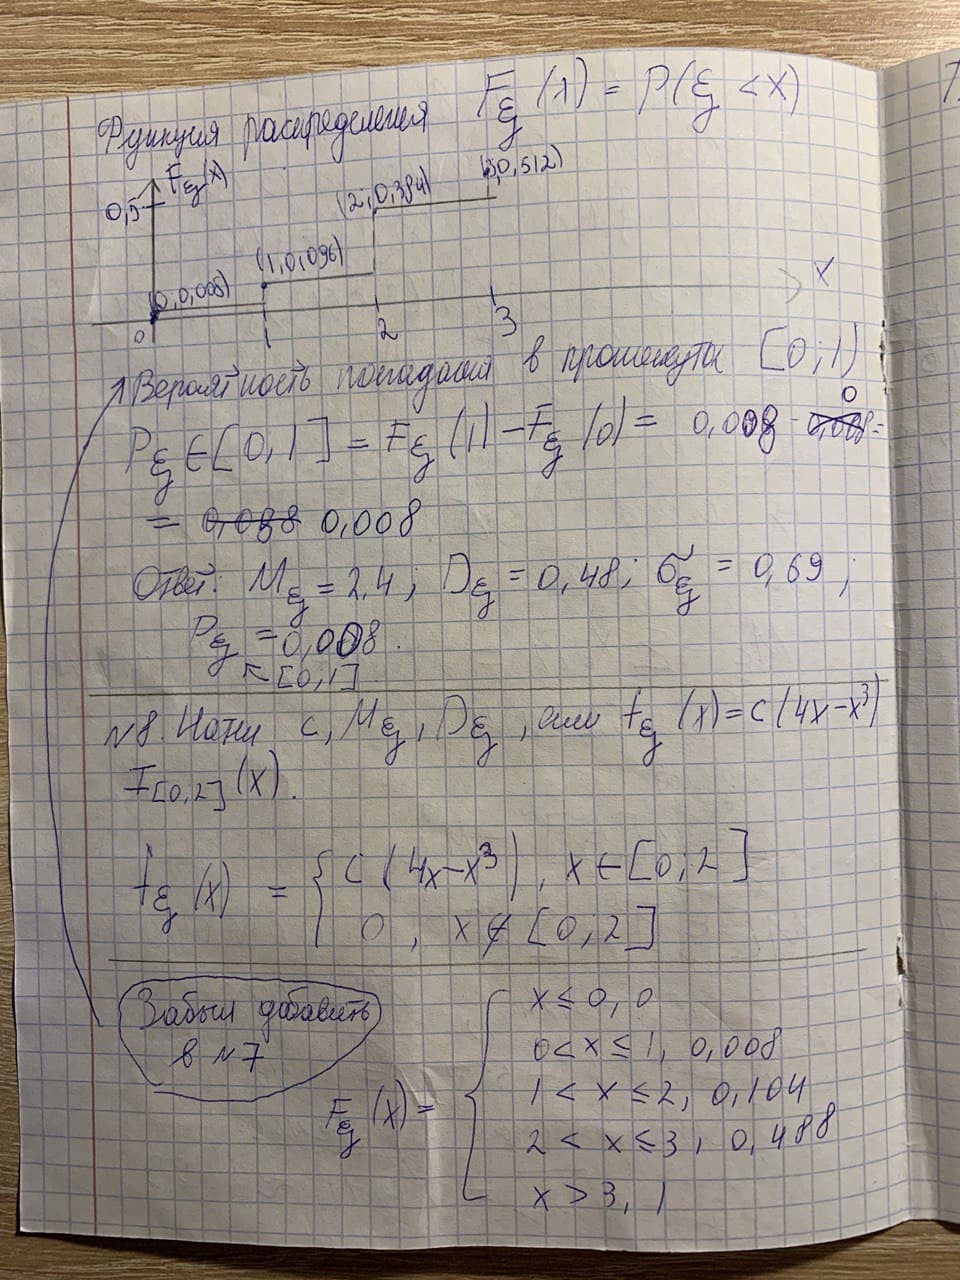 Функция распределения F_ξ(x) = P(ξ < x)
F_ξ(x)
0,5
(0,0,008)
(1,0,096)
(2; 0,384)
(3,0,512)
x
0 1 2 3
Вероятность попадания в промежуток [0;1)
P_ξ∈[0,1] = F_ξ(1) - F_ξ(0) = 0,008 - 0 =
= 0,008
Ответ: M_ξ = 2,4; D_ξ = 0,48; σ_ξ = 0,69;
P_ξ = 0,008.
[0,1]
№8. Найти c, M_ξ, D_ξ, если f_ξ(x) = c(4x-x³)
I[0,2](x).
f_ξ(x) = { c(4x-x³), x∈[0;2]
0, x∉[0;2]
Забыл добавить
в №7
F_ξ(x) = { x ≤ 0, 0
0 < x ≤ 1, 0,008
1 < x ≤ 2, 0,104
2 < x ≤ 3, 0,488
x > 3, 1